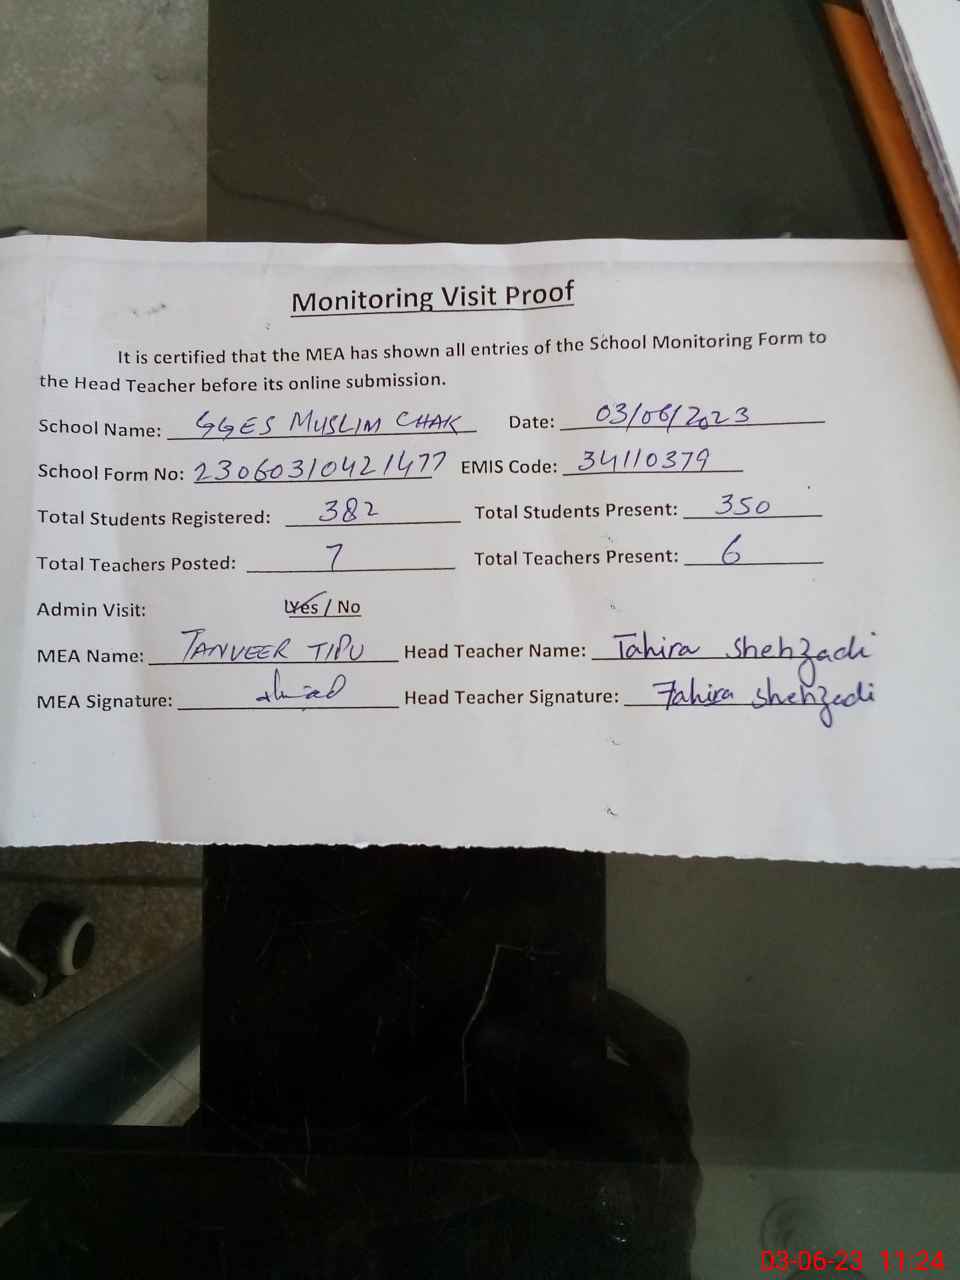 Monitoring Visit Proof
It is certified that the MEA has shown all entries of the School Monitoring Form to
the Head Teacher before its online submission.
School Name: GGES MUSLIM CHAK Date: 03/06/2023
School Form No: 23060310421477 EMIS Code: 34110379
Total Students Registered: 382 Total Students Present: 350
Total Teachers Posted: 7 Total Teachers Present: 6
Admin Visit: Yes / No
MEA Name: TANVEER TIPU Head Teacher Name: Tahira Shehzadi
MEA Signature: Head Teacher Signature: Tahira Shehzadi
03-06-23 11:24